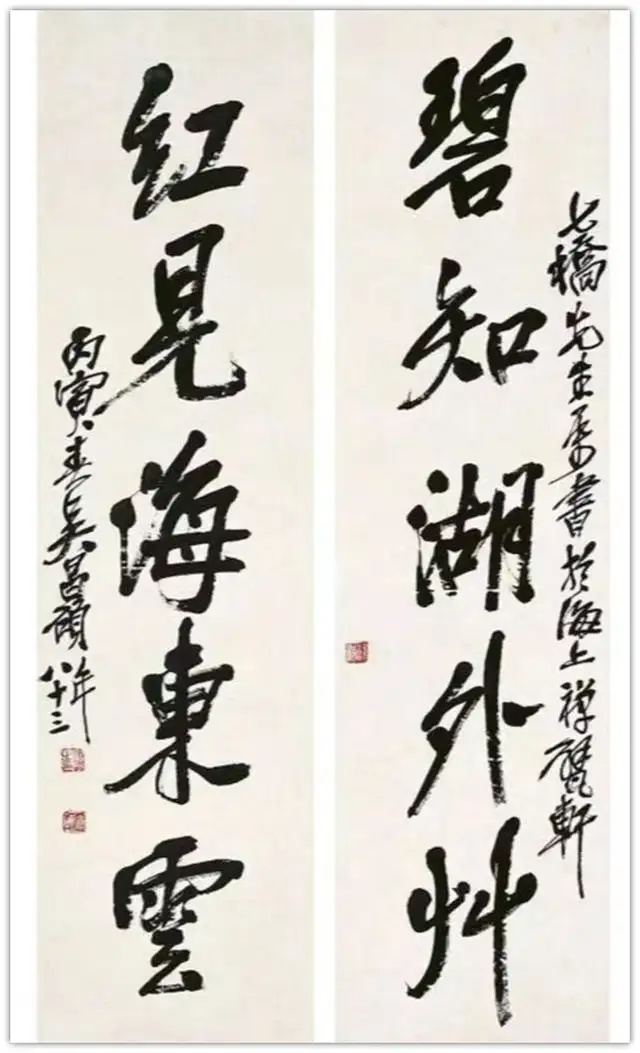 碧知湖外艸
七橋先生属書於海上禪甓軒
紅見海東雲
丙寅春吴昌碩
年八十三